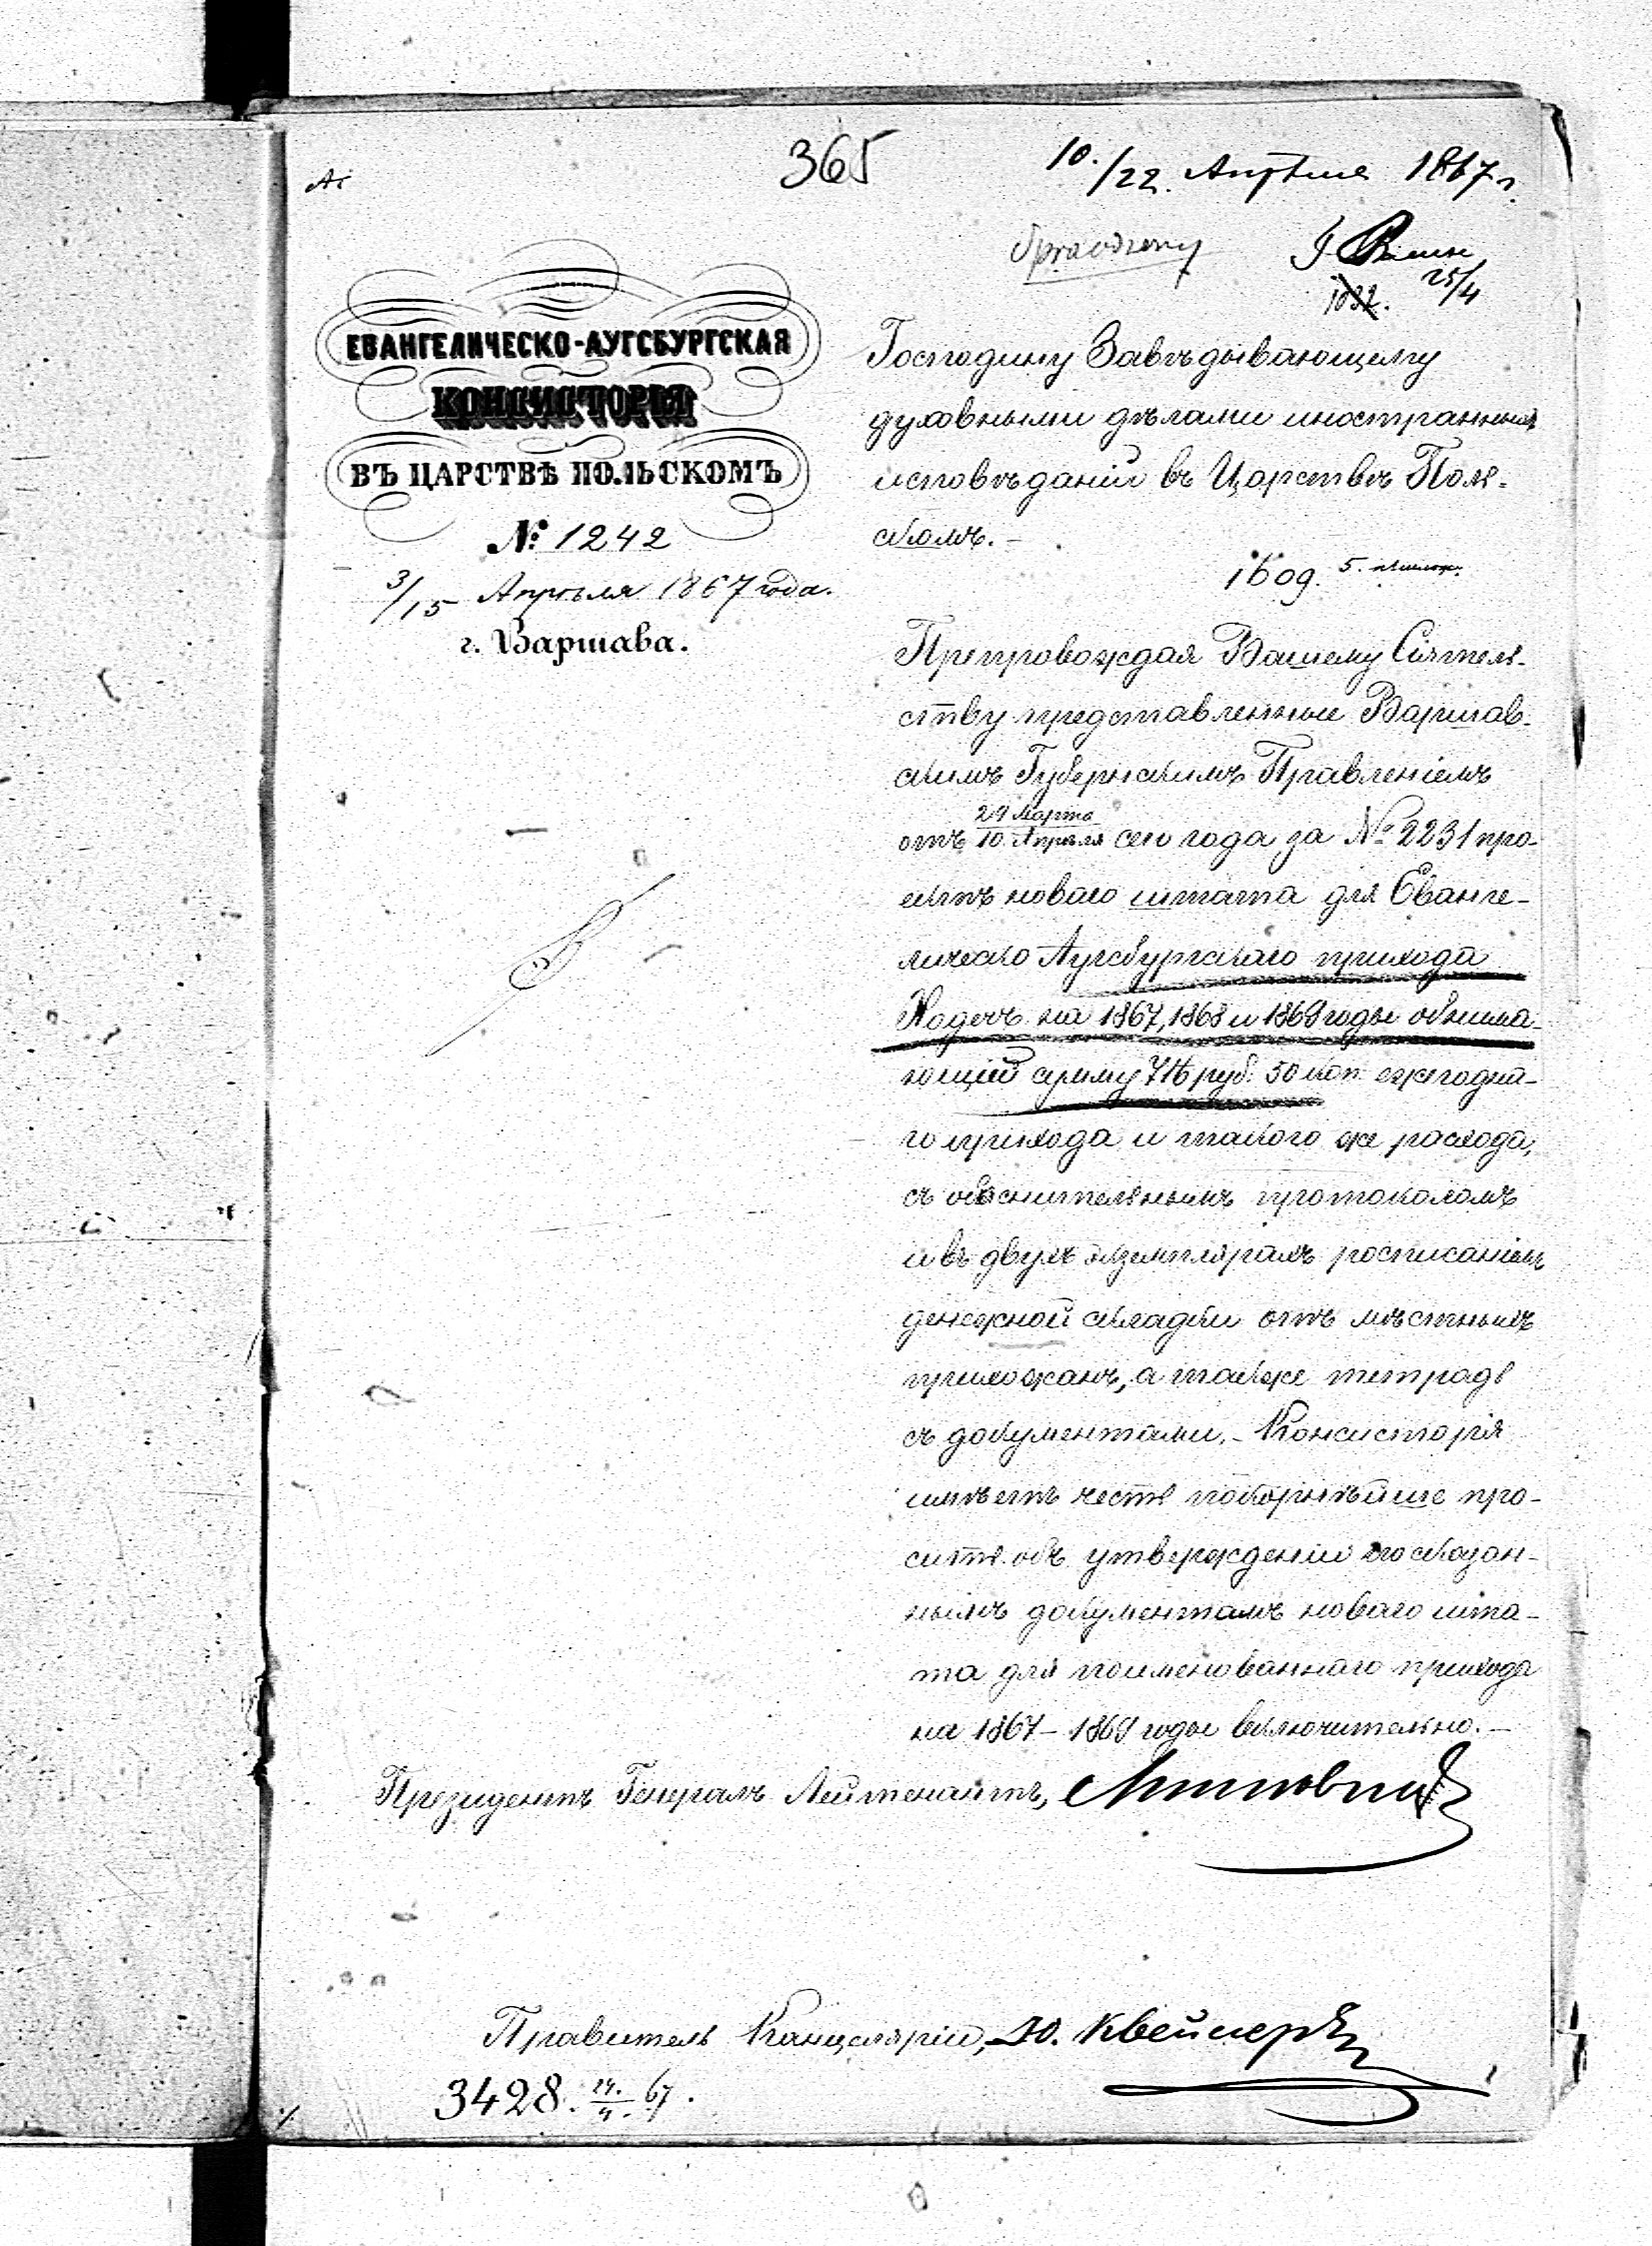 365
10./22. Апрѣля 1867 г.
Sprawdzony
25/4
1032.
ЕВАНГЕЛИЧЕСКО-АУГСБУРГСКАЯ
КОНСИСТОРІЯ
ВЪ ЦАРСТВѢ ПОЛЬСКОМЪ
№ 1242
3/15 Апрѣля 1867 года.
г. Варшава.
Господину Завѣдывающему
духовными дѣлами иностранныхъ
исповѣданій въ Царствѣ Поль-
скомъ. –
Препровождая Вашему Сіятель-
ству представленные Варшав-
скимъ Губернскимъ Правленіемъ
отъ 29 Марта/10 Апрѣля сего года за № 2231 про-
ектъ новаго штата для Еванге-
лическо Аугсбургскаго прихода
Ходечъ на 1867, 1868 и 1869 годы обнима-
ющій сумму 716 руб. 50 коп. ежегодна-
го прихода и такого же расхода,
съ объяснительнымъ протоколомъ
и въ двухъ экземплярахъ росписаніемъ
денежной складки отъ мѣстныхъ
прихожанъ, а также тетрадь
съ документами. – Консисторія
имѣетъ честь покорнѣйше про-
сить объ утвержденіи по сказан-
нымъ документамъ новаго шта-
та для поименованнаго прихода
на 1867 – 1869 годы включительно. –
Президентъ Генералъ Лейтенантъ,
Правитель Канцеляріи, Ю. Квейсеръ
3428. 24./4. 67.